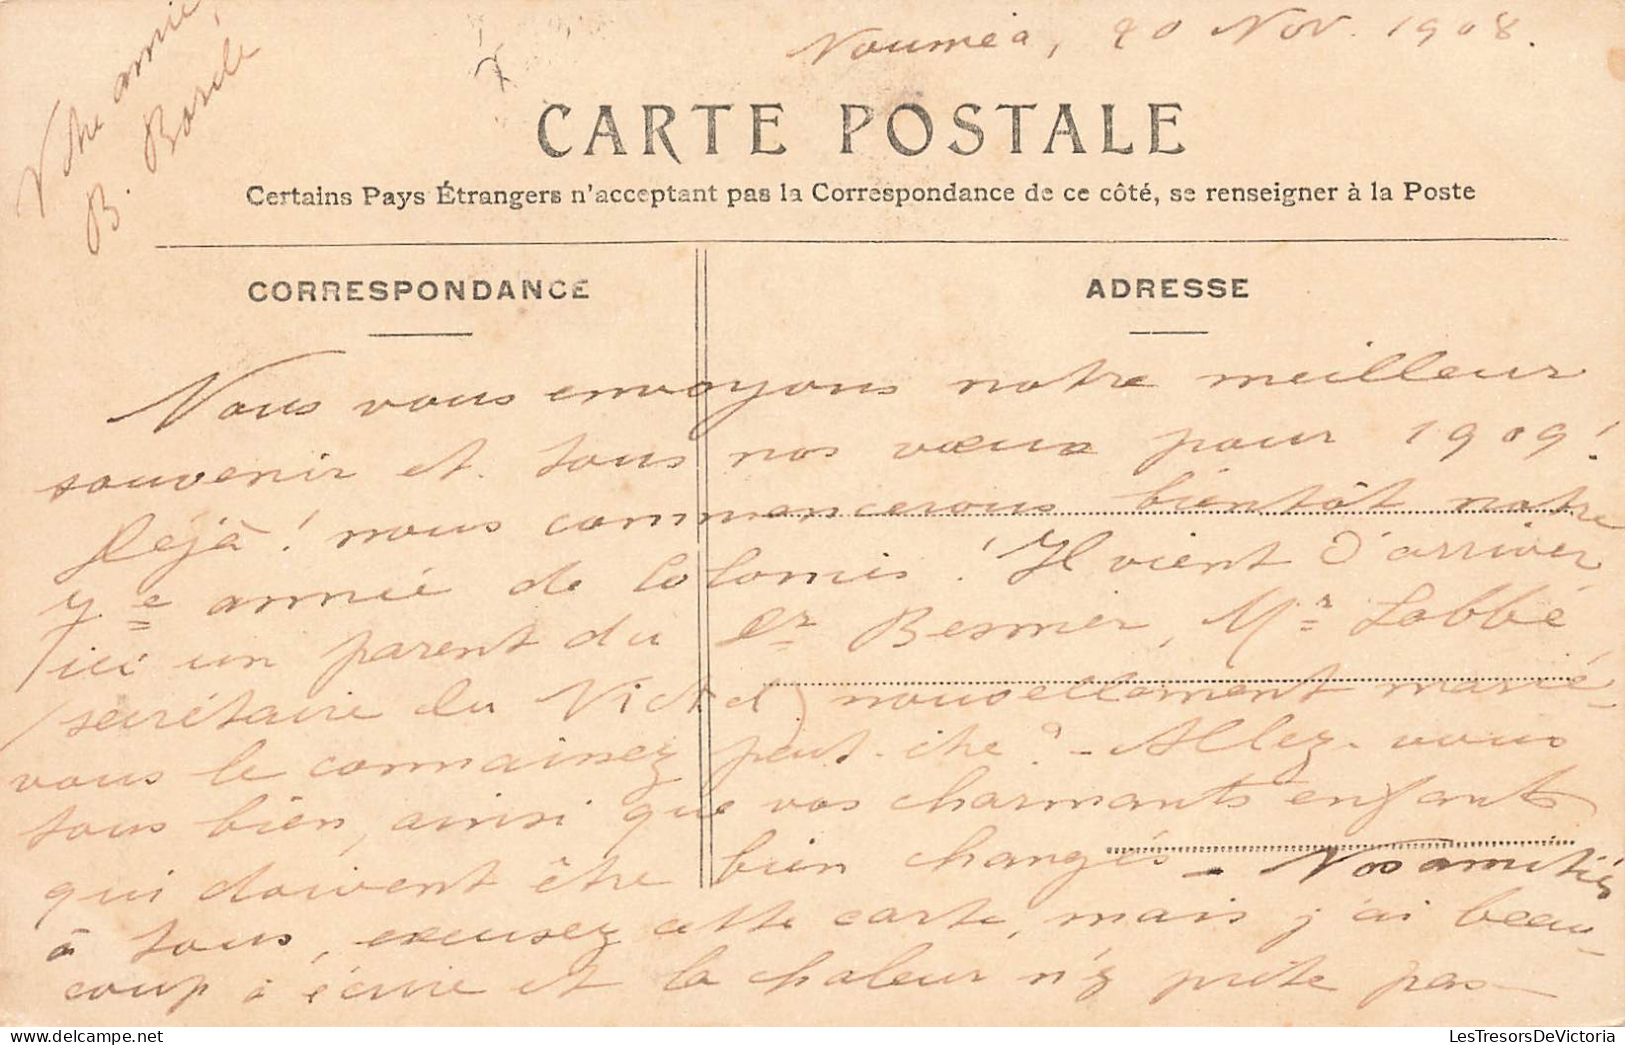 Nouméa, 20 Nov. 1908.
CARTE POSTALE
Certains Pays Étrangers n'acceptant pas la Correspondance de ce côté, se renseigner à la Poste
CORRESPONDANCE
ADRESSE
Nous vous envoyons notre meilleur
souvenir et tous nos vœux pour 1909!
Déjà! nous commencerons bientôt notre
annéé de Colonies! Il vient d'arriver
ici un parent du Dr Besnier, Mr Labbé
(secrétaire du) nouvellement marié -
vous le connaissez peut-être? - Allez-vous
tous bien, ainsi que vos charmants enfants
qui doivent être bien changés - Nos amitiés
à tous, excusez cette carte, mais j'ai beau-
coup à écrire et la chaleur n'y prête pas -
Votre amie,
B.
LesTresorsDeVictoria.com